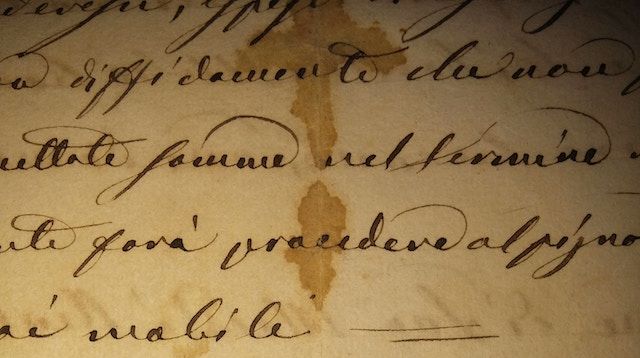 ra diffidamente che non
nettate somme nel termine
nte farà procedere al pigno
oi mobili